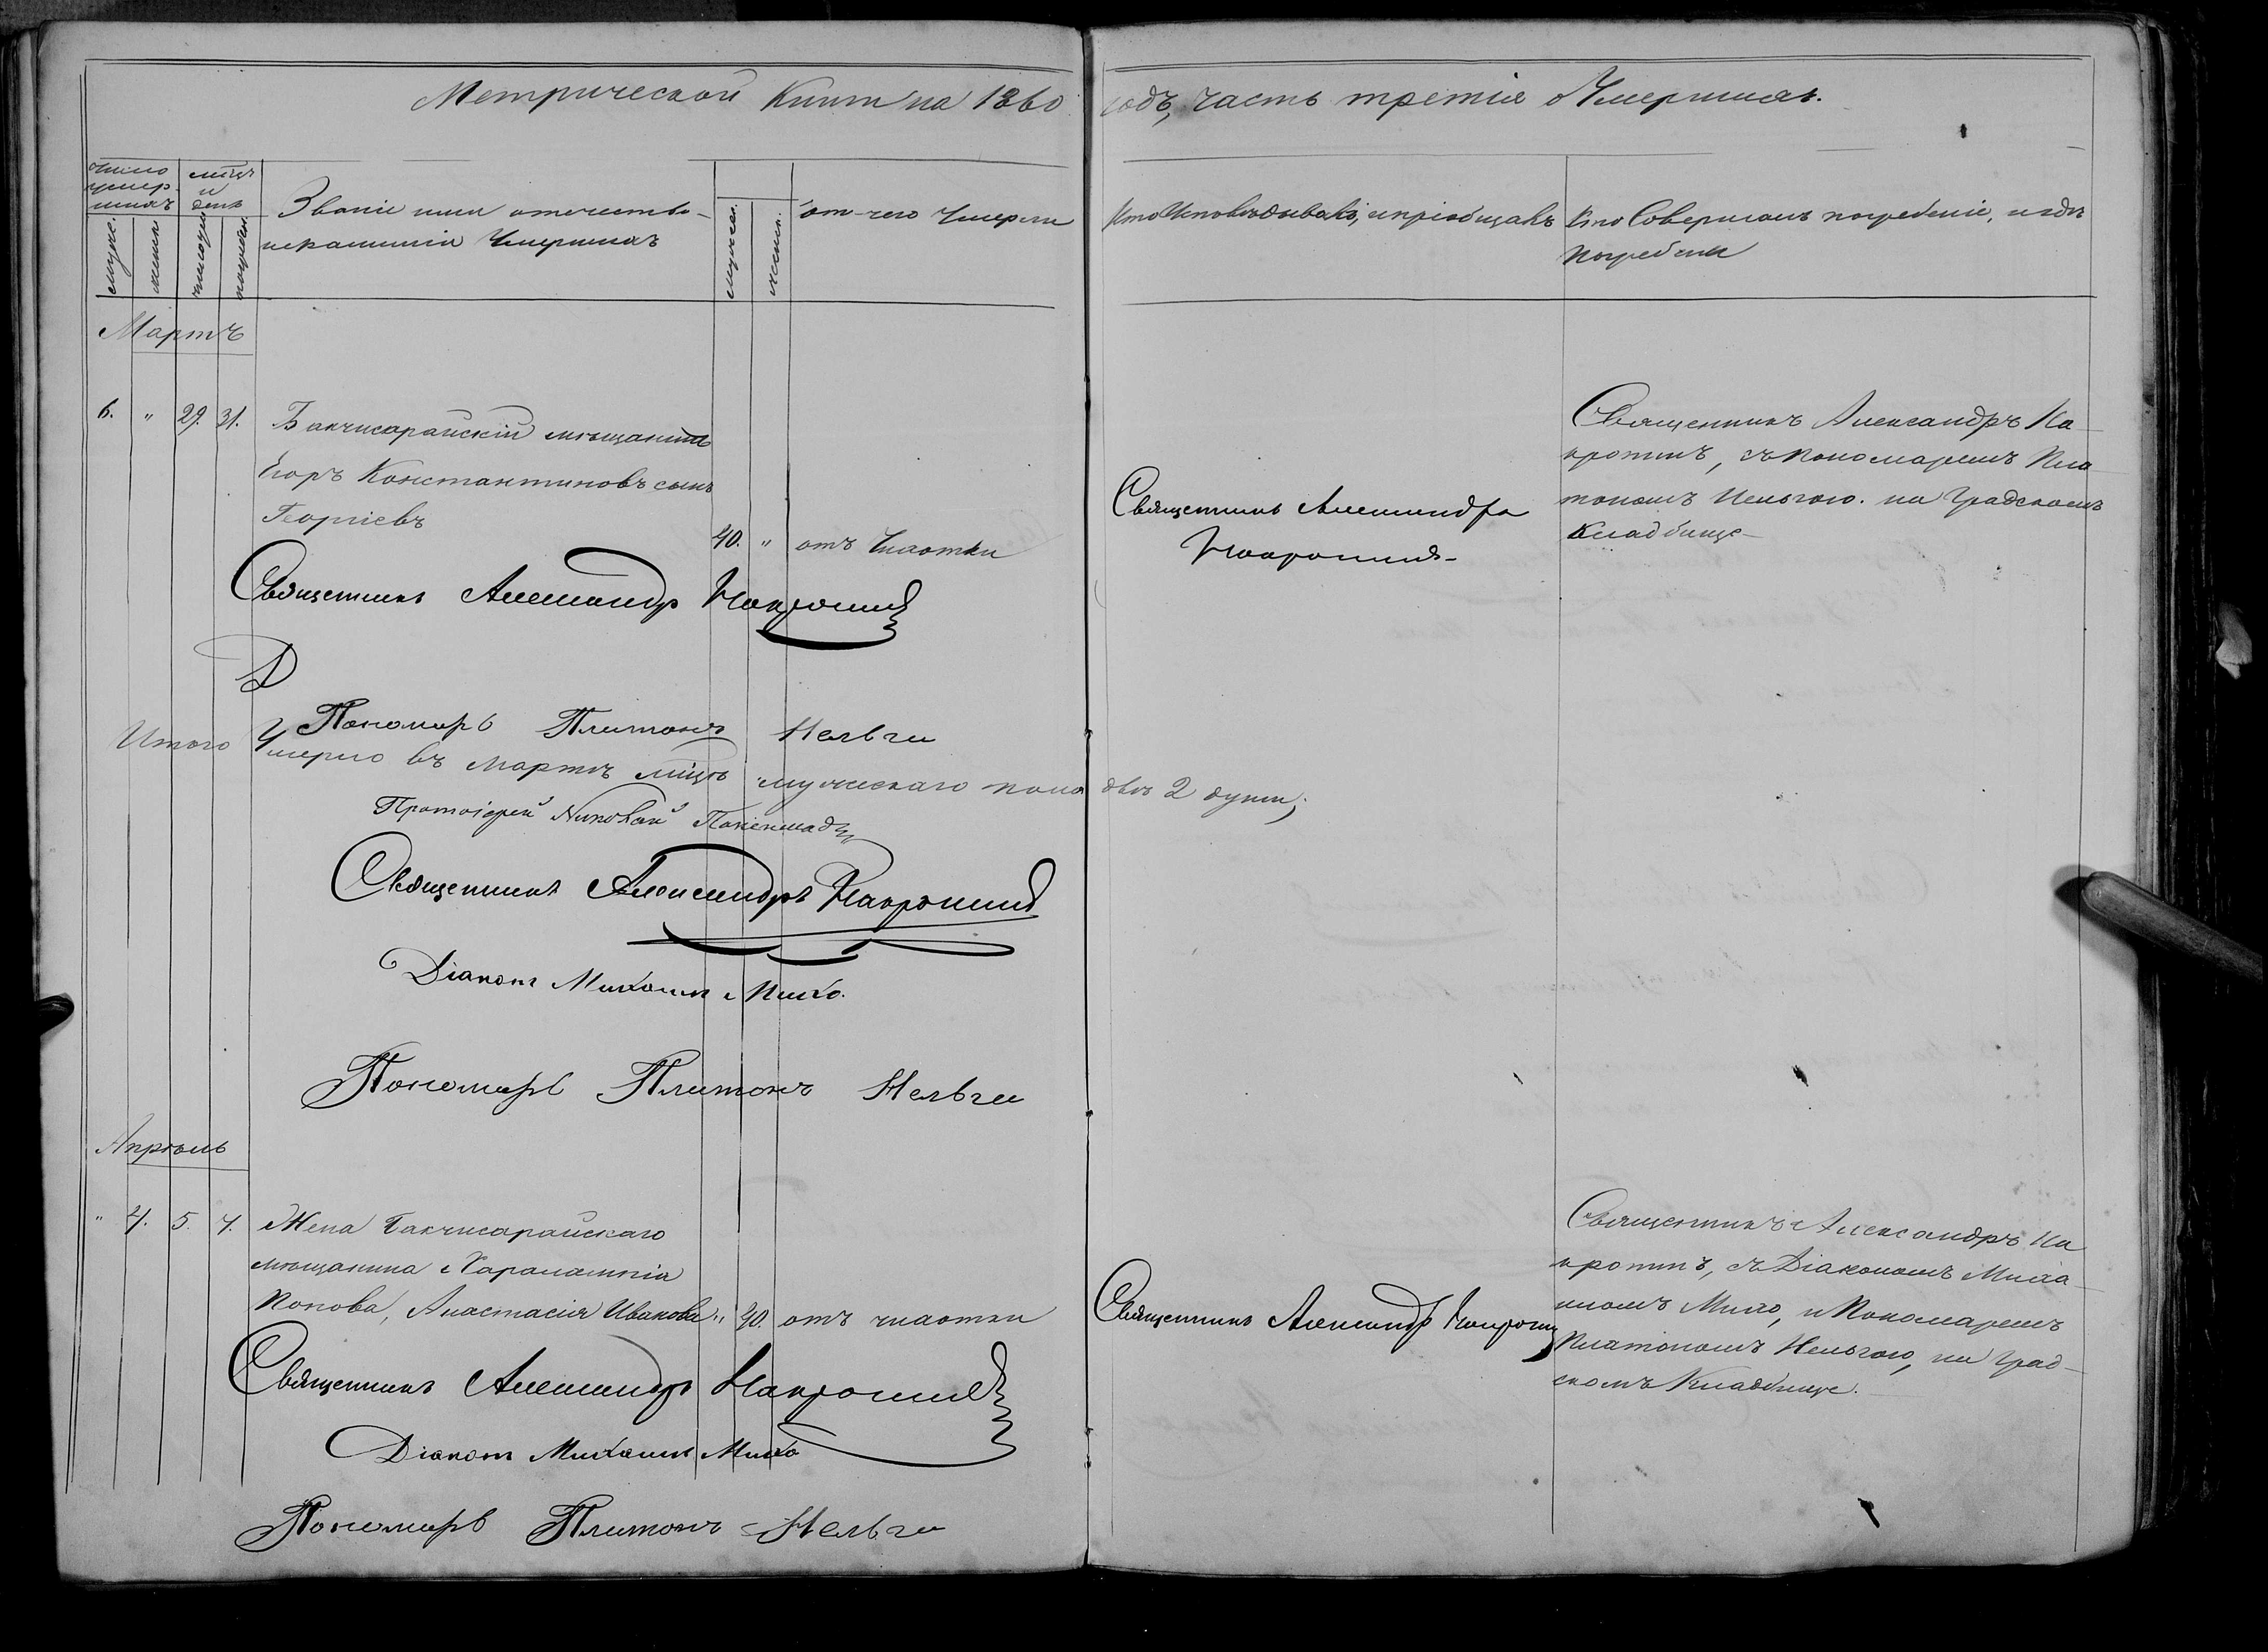 Метрической Книги на 1860 годъ, часть третія о Умершихъ.
Число умер-шихъ
мѣцъ и день
Званіе имя отчество
и фамилія Умершихъ
мужес.
женск.
отъ чего Умерли
Кто Исповѣдывалъ, и пріобщалъ
Кто Совершалъ погребеніе, и гдѣ
погребены
мужс.
женск.
Мартъ
6. " 29. 31.
Бакчисарайскій мѣщанинъ
Егоръ Константиновъ сынъ
Георгіевъ
40. " отъ Чахотки
Священникъ Александръ
Священникъ Александръ На
кропинъ, съ Пономаремъ Пла
тономъ Нельгою. на Градскомъ
Кладбище
Священникъ Александръ Накропинъ
Пономарь Платонъ Нельга
Итого Умерло въ Мартѣ мѣцѣ мужескаго пола двѣ 2 души;
Протоіерей Николай
Священникъ Александръ Накропинъ
Діаконъ Михаилъ Михо.
Пономарь Платонъ Нельга
Апрѣль
" 4. 5. 7.
Жена Бакчисарайскаго
мѣщанина Харалампія
Попова, Анастасія Иванова
" 40. отъ чахотки
Священникъ Александръ Накропинъ
Священникъ Александръ На
кропинъ, съ Діакономъ Миха
иломъ Михо, и Пономаремъ
Платономъ Нельгою, на Град
скомъ Кладбище.
Священникъ Александръ Накропинъ
Діаконъ Михаилъ Михо
Пономарь Платонъ Нельга